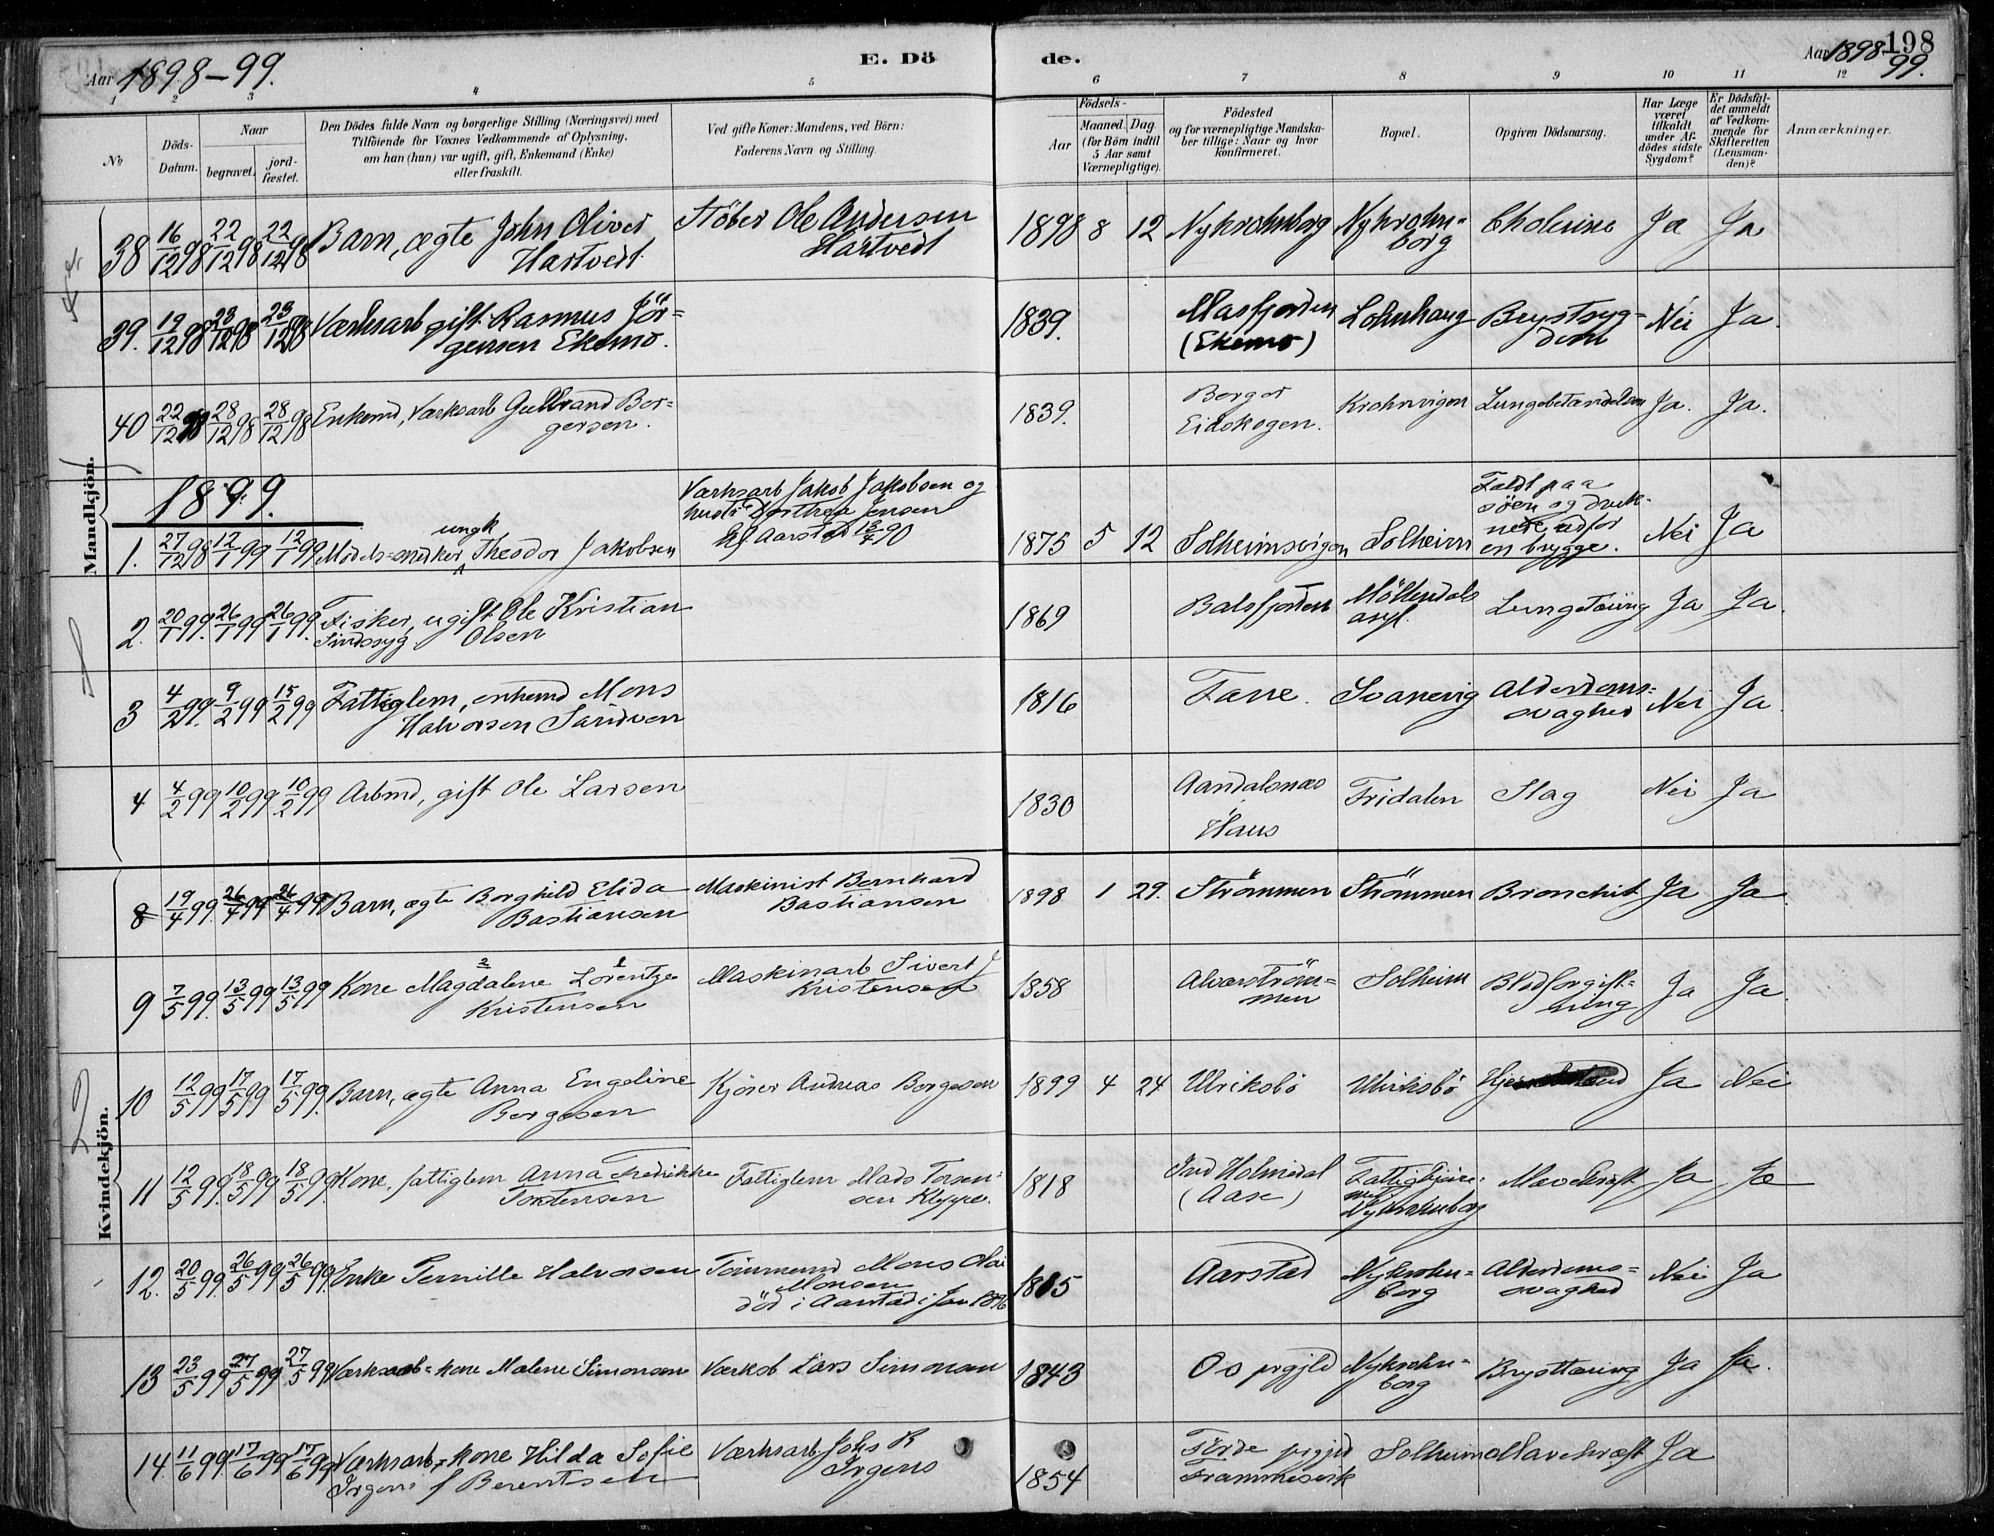 Aar 1898-99.
E. Dö
de.
Aar 1898-99.
198
1 2 3 4 5 6 7 8 9 10 11 12
No
Döds-Datum.
Naar
begravet.
jord-fæstet.
Den Dödes fulde Navn og borgerlige Stilling (Næringsvei) med
Tilföiende for Voxnes Vedkommende af Oplysning,
om han (hun) var ugift, gift, Enkemand (Enke)
eller fraskilt.
Ved gifte Koner: Mandens, ved Börn:
Faderens Navn og Stilling.
Födsels-
Aar
Maaned. Dag
(for Börn indtil
5 Aar samt
Værnepligtige).
Födested
og for værnepligtige Mandska-
ber tillige: Naar og hvor
konfirmeret.
Bopæl.
Opgiven Dödsaarsag.
Har Læge
været
tilkaldt
under Af-
dödes sidste
Sygdom?
Er Dödsfal-
det anmeldt
af Vedkom-
mende for
Skifteretten
(Lensman-
den)?
Anmærkninger.
Mandkjön.
38 16/12 98 22/12 98 22/12 98 Barn, ægte John Oliver Stöber Ole Andersen 1898 8 12 Nykrohnborg Nykrohn- Cholerine Ja Ja
Hartvedt Hartvedt borg
39. 19/12 98 23/12 98 23/12 98 Værksarb gift Rasmus Jör- 1839. Masfjorden Lohnhaug Brystsyg- Nei Ja.
gensen Ekemo. (Ekemo) dom
40 22/12 98 28/12 98 28/12 98 Enkemd, Værksarb Gulbrand Bor- 1839. Borger Krohnvigen Lungebetændelse Ja. Ja.
gersen. Eidskogen.
1899.
Værksarb Jakob Jakobsen og Faldt paa
ungk hustr Dorthea Jensen söen og druk-
1. 27/12 98 12/1 99 12/1 99 Models=snedker Theodor Jakobsen 1875 5 12 Solheimsvigen Solheim nede udfor Nei Ja
en brygge.
2. 20/1 99. 26/1 99 26/1 99. Fisker, ugift Ole Kristian 1869 Balsfjorden Möllendals Lungetæring Ja Ja.
Sindssyg Olsen asyl.
3 4/2 99. 9/2 99 15/2 99 Fattiglem, enkemd Mons 1816 Fane. Svanevig Alderdoms= Nei Ja.
Halvorsen Sandven svaghed
4 4/2 99 10/2 99 10/2 99 Arbmd, gift Ole Larsen 1830 Aandalsnæs Fridalen Slag Nei Ja
Haus
Kvindekjön.
8 19/4 99. 26/4 99 26/4 99 Barn, ægte Borghild Elida Maskinist Bernhard 1898 1 29. Strömmen Strömmen Bronchit Ja Ja.
Bastiansen Bastiansen
9 7/5 99. 13/5 99 13/5 99 Kone Magdalene Lorentze Maskinarb Sivert J 1858 Alverström= Solheim Blodforgift= Ja Ja.
Kristensen Kristensen men ning
10 12/5 99 17/5 99 17/5 99. Barn, ægte Anna Engeline Kjörer Andreas Borgesen 1899 4 24 Ulriksbö Ulriksbö Ja Nei
Borgesen
11 12/5 99. 18/5 99 18/5 99. Kone, fattiglem Anna Fredrikke Fattiglem Mads Torsen= 1818 Ind Holmedal Fattighjem= Mavekræft Ja Ja
Torstensen sen Kleppe. (Aase) met Nykrohnborg
12. 20/5 99. 26/5 99 26/5 99. Enke Pernille Halvorsen Tömmermd Mons Olai 1815 Aarstad Nykrohn= Alderdoms= Nei Ja
Monsen borg svaghed
död i Aarstad i Jan 1896
13 23/5 99 27/5 99 27/5 99 Værksarb=kone Malene Simonsen Værksb Lars Simonsen 1843 Os prgjld Nykrohn= Brysttæring Ja Ja.
borg
14. 11/6 99 17/6 99 17/6 99 Værksarb=kone Hilda Sofie Værksarb Johs R 1854 Förde prgjd Solheim Mavekræft Ja
Irgens f Berentsen Irgens